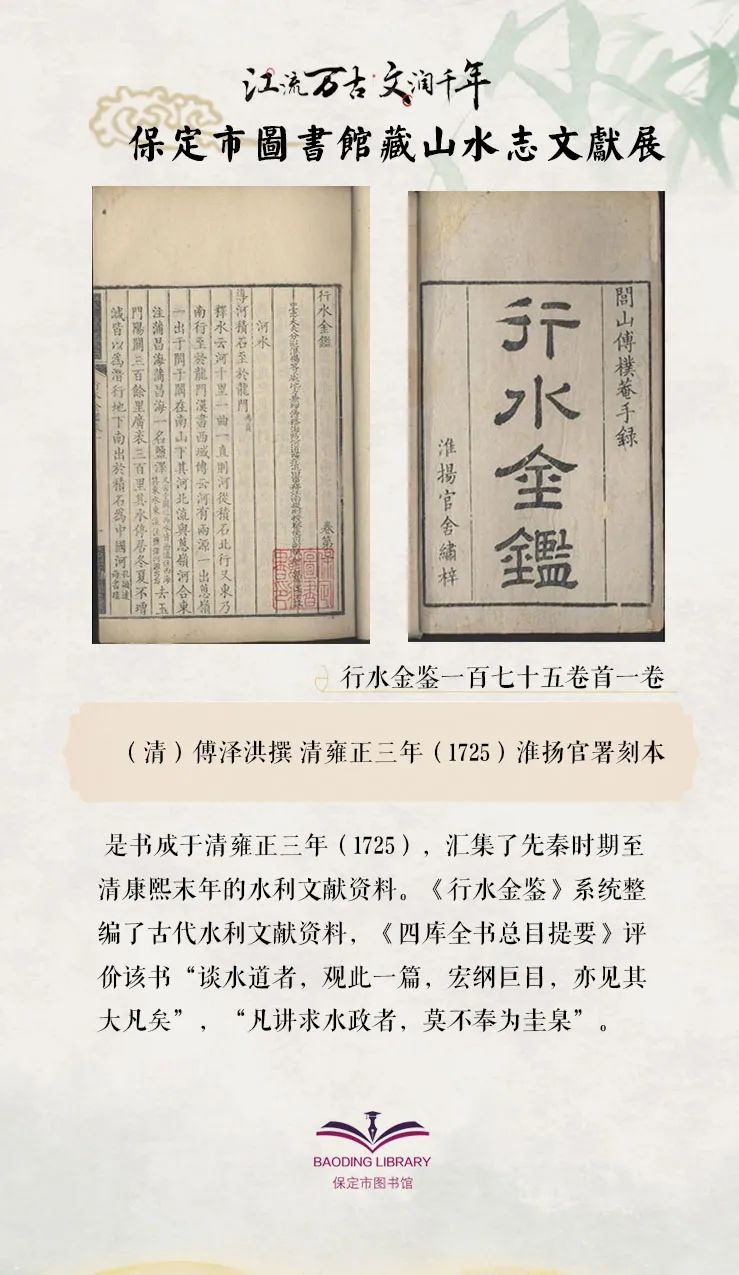 江流万古·文润千年
保定市圖書館藏山水志文獻展
行水金鑑
卷第一
河水
導河積石至於龍門
釋水云河千里一曲一直則河從積石北行又東乃
南行至於龍門漢書西域傳云河有兩源一出蔥嶺
一出于闐于闐在南山下其河北流與蔥嶺河合東
注蒲昌海蒲昌海一名鹽澤
去玉
門陽關三百餘里廣袤三百里其水停居冬夏不增
減皆以為潛行地下南出於積石為中國河
閭山傅樸菴手録
行水金鑑
淮揚官舍繡梓
行水金鉴一百七十五卷首一卷
（清）傅泽洪撰 清雍正三年（1725）淮扬官署刻本
是书成于清雍正三年（1725），汇集了先秦时期至
清康熙末年的水利文献资料。《行水金鉴》系统整
编了古代水利文献资料，《四库全书总目提要》评
价该书“谈水道者，观此一篇，宏纲巨目，亦见其
大凡矣”，“凡讲求水政者，莫不奉为圭臬”。
BAODING LIBRARY
保定市图书馆